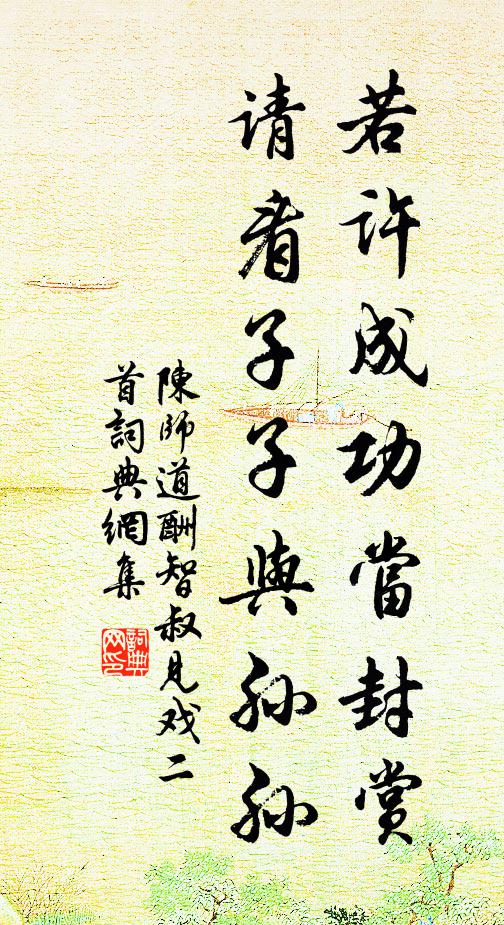 若许成功當封赏
请看子子與孙孙
陳師道酬智叔見戏二
首詞典網集
詞典网印